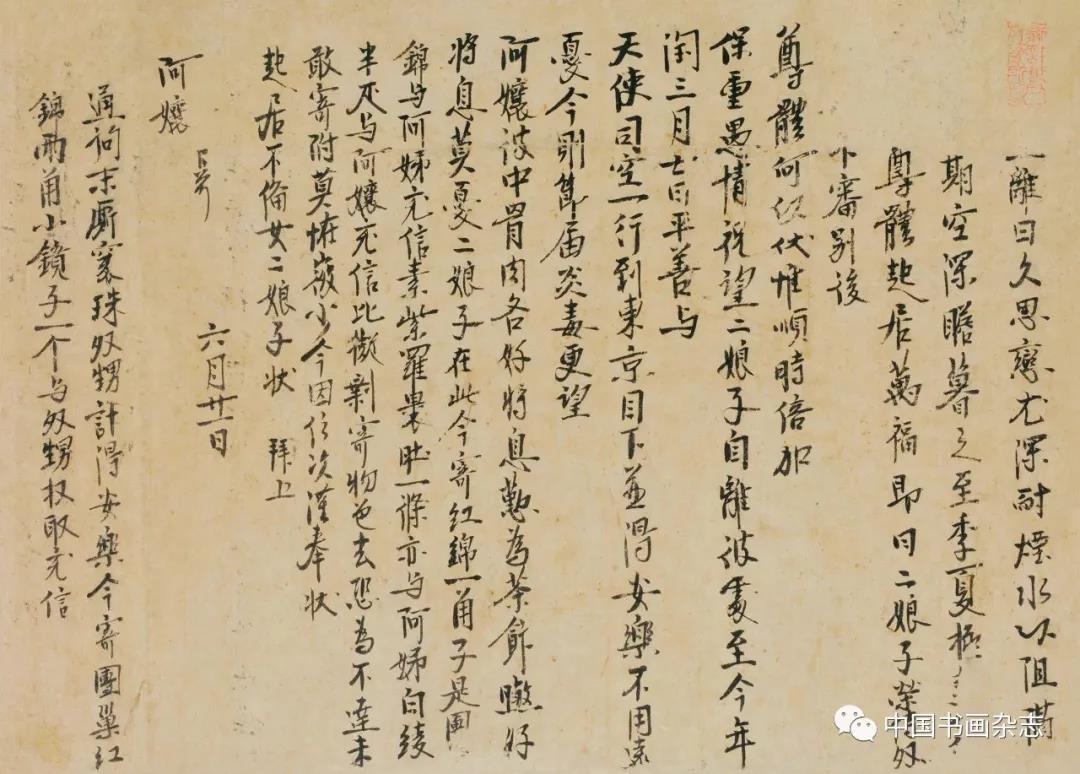 離日久思戀尤深耐煙水以阻𮟏
期空深瞻暮之至季夏極
尊體起居萬福即日二娘子榮奴
不審別後
尊體何似伏惟順時倍加
保重愚情祝望二娘子自離彼處至今年
閏三月七日平善与
天使司空一行到東京目下並得安樂不用遠
憂今則節届炎毒更望
阿孃彼中骨肉各好將息勤為茶飰煞好
將息莫憂二娘子在此今寄紅錦一角子是團
錦与阿姊充信素紫羅裹肚一條亦与阿姊白綾
半疋与阿孃充信比擬剩寄物色去恐為不達未
敢寄附莫恠微少今因信次謹奉狀
起居不備女二娘子狀 拜上
阿孃
六月廿一日
通詢末厮寠珠奴甥計得安樂今寄團巢紅
錦兩角小鏡子一个与奴甥权取充信
中国书画杂志